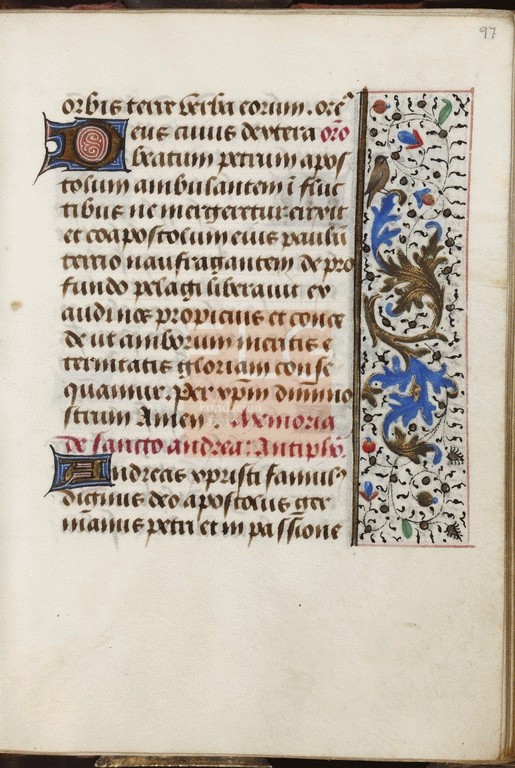 97
orbis terre verba eorum. orō
Deus cuius dextera oro
beatum petrum apos
tolum ambulantem ī fluc
tibus ne mergeretur erexit
et coapostolum eius paulū
tercio naufragantem de pro
fundo pelagi liberauit ex
audi nos propicius et conce
de ut amborum meritis e
ternitatis gloriam conse
quamur. Per xp̄m dominū
strum Amen. Memoria
de sancto andrea: Antiphō.
Andreas xpristi famulꝰ
dignus deo apostolus ger
manus petri et in passione